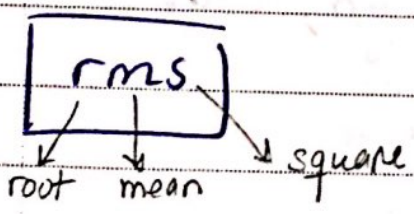 rms
root mean square